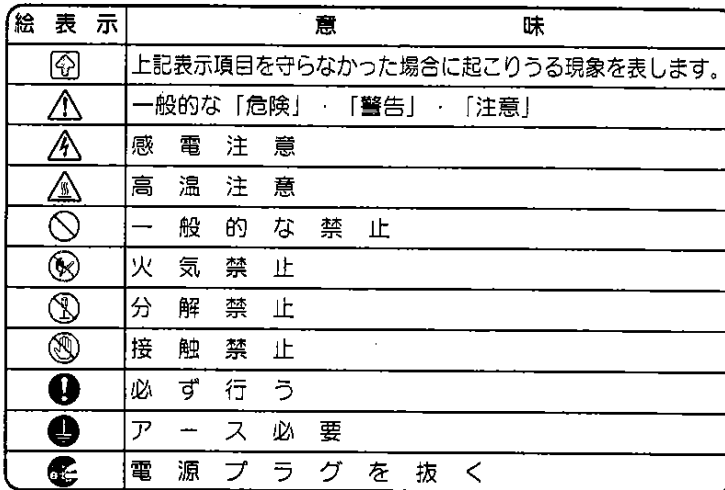 絵表示 意味
上記表示項目を守らなかった場合に起こりうる現象を表します。
一般的な「危険」・「警告」・「注意」
感電注意
高温注意
一般的な禁止
火気禁止
分解禁止
接触禁止
必ず行う
アース必要
電源プラグを抜く